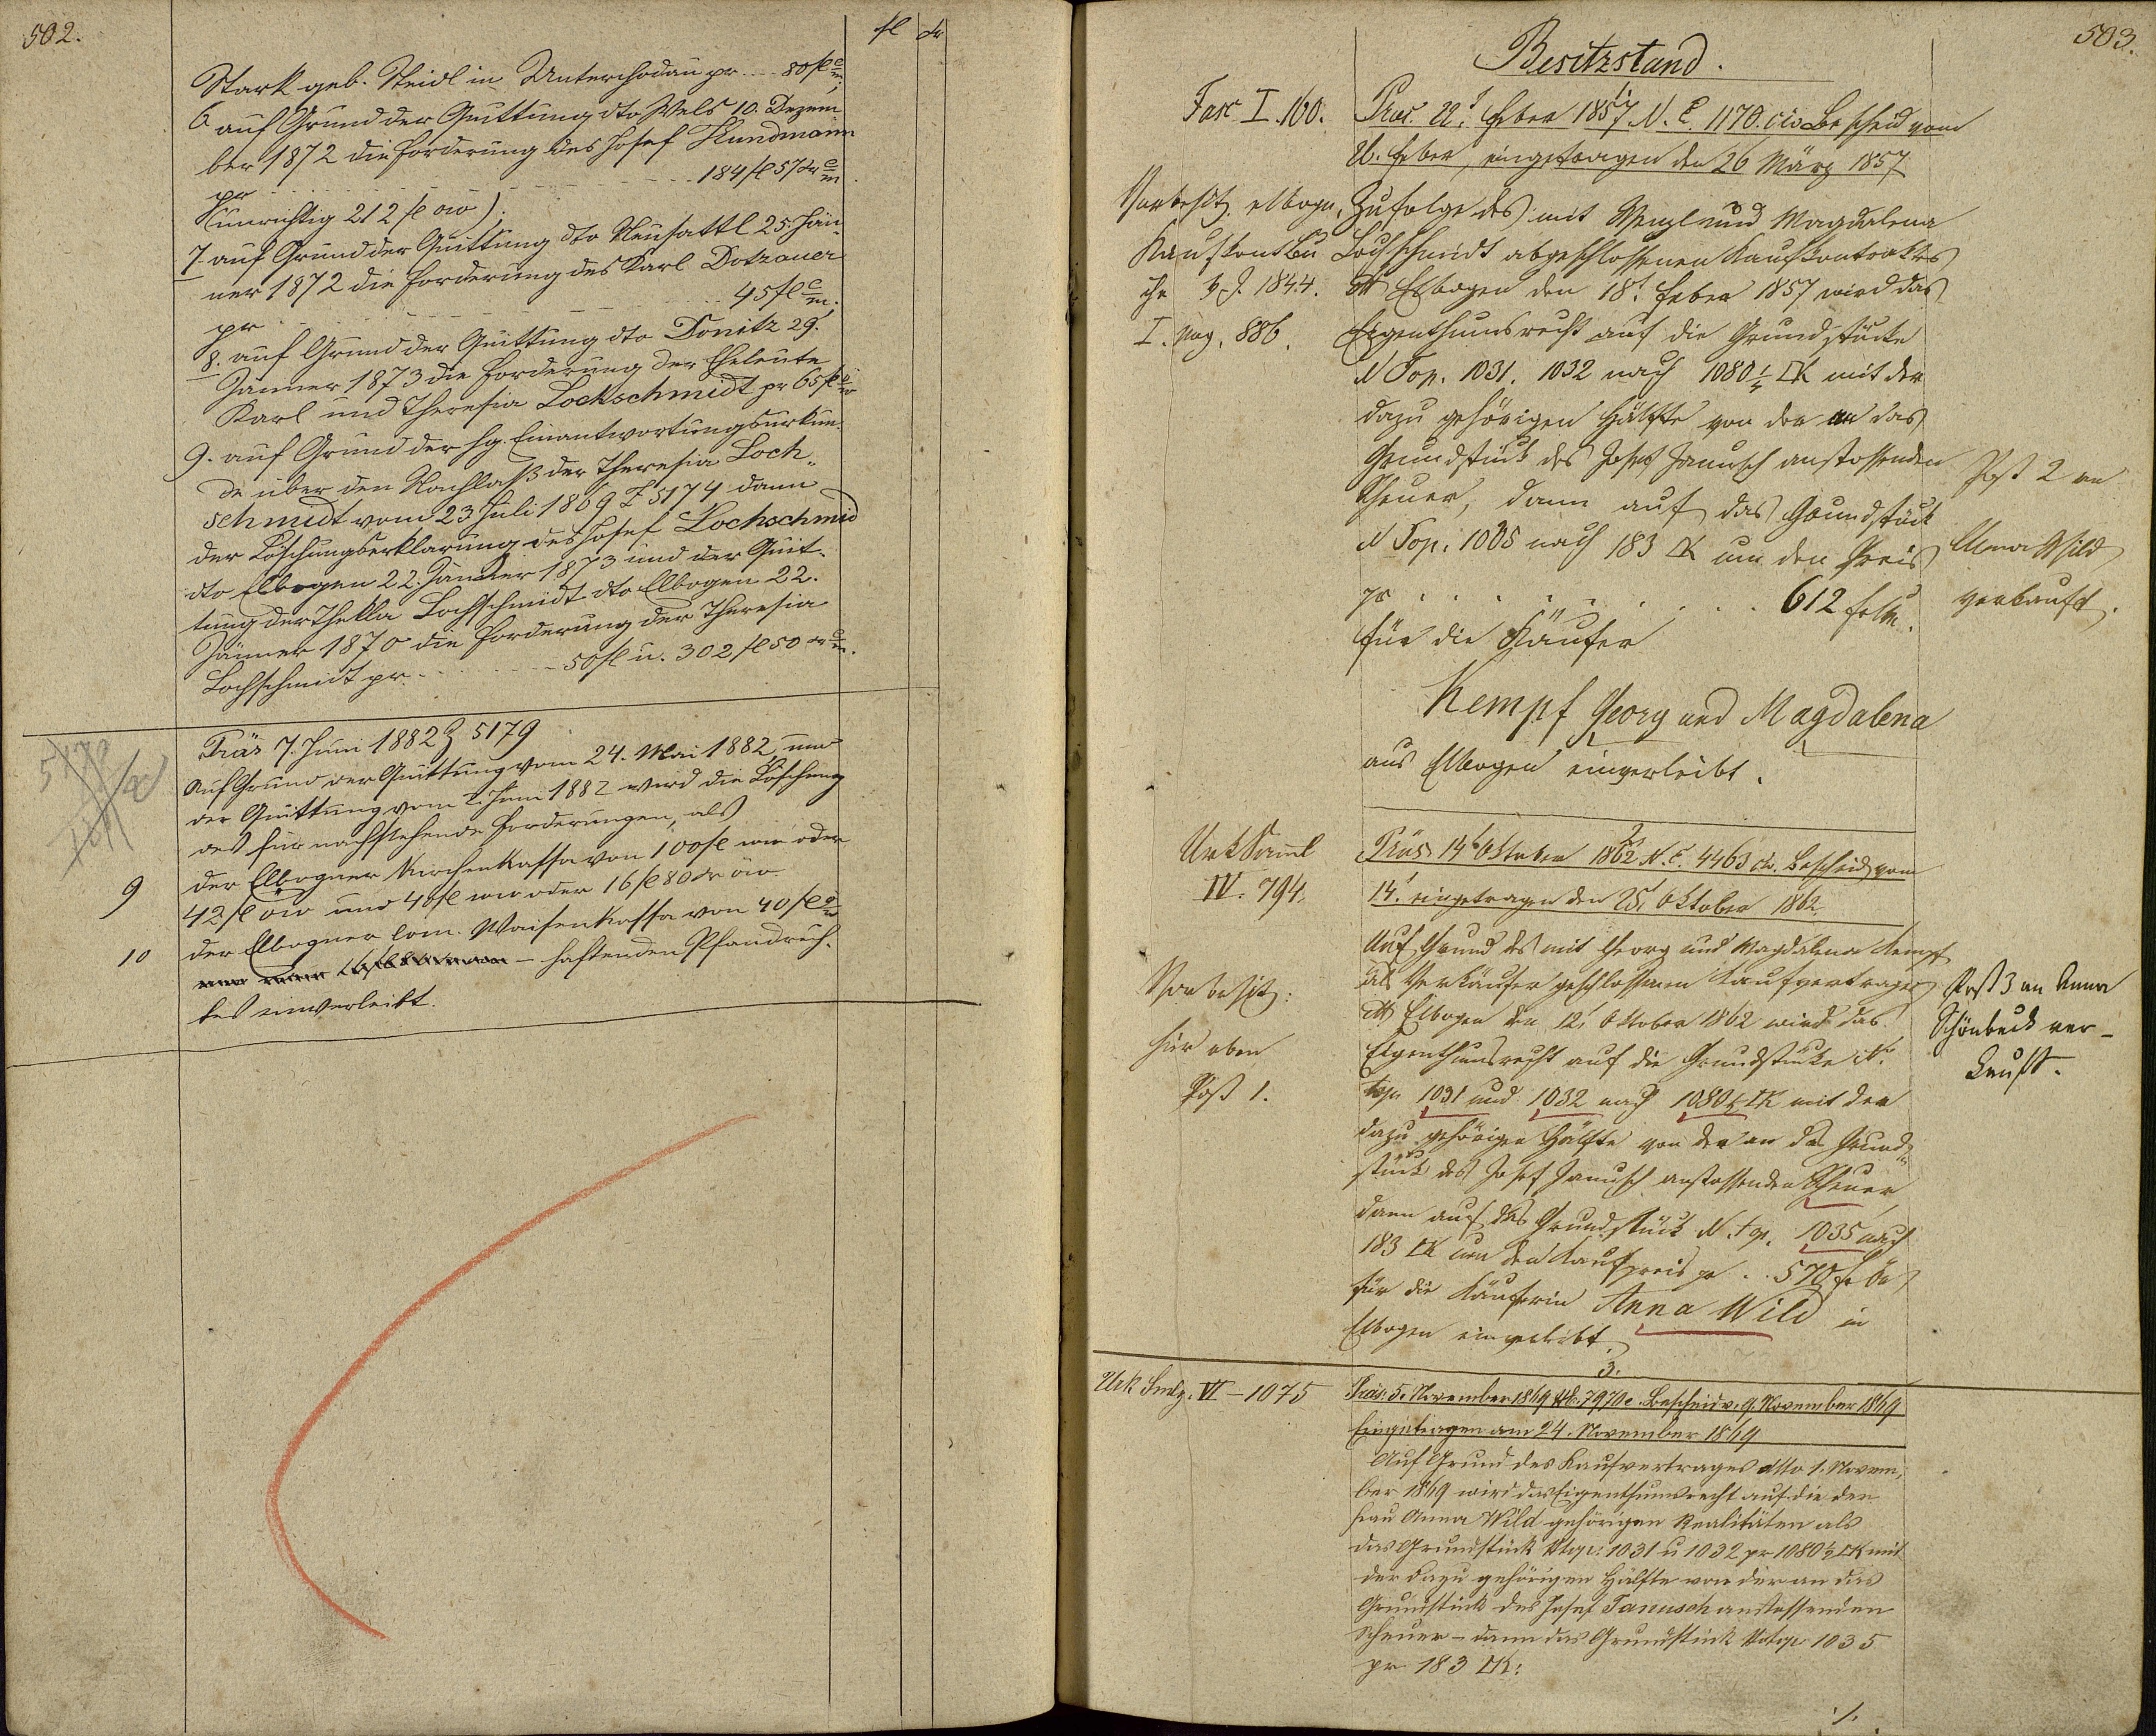 502.
fl kr
Stark geb. Steidl in Unterchodau pr. 80 fl
6 auf Grund der Quittung dto Wels 10. Dezem
ber 1872 die Forderung des Josef Kundmann
pr 184 fl 57 kr
(unrichtig 212 fl ow).
7. auf Grund der Quittung dto Neusattl 25. Jän-
ner 1872 die Forderung des Karl Dotzauer
pr 45 fl
8. auf Grund der Quittung dto Donitz 29.
Jänner 1873 die Forderung der Eheleute
Karl und Theresia Lochschmidt pr 65 fl
9. auf Grund der hg. Einantwortungsurkun-
de über den Nachlaß der Theresia Loch-
schmidt vom 23 Juli 1869 Z 5174 dann
der Löschungserklärung des Josef Lochschmid
dto Elbogen 22. Jänner 1873 und der Quit-
tung der Thekla Lochschmidt dto Elbogen 22.
Jänner 1870 die Forderung der Theresia
Lochschmidt pr 50 fl u. 302 fl 50 kr
Präs 7. Juni 1882 Z 5179
Auf Grund der Quittung vom 24. Mai 1882 und
der Quittung vom Juni 1882 wird die Löschung
des für nachstehende Forderungen, als
9 der Elbogner Kirchenkassa von 100 fl ww oder
42 fl öw und 40 fl ww oder 16 fl 80 kr öw
10 der Elbogner Waisenkassa von 40 fl
haftenden Pfandrech-
tes einverleibt.
503.
Besitzstand.
1.
Fasc I. 160.
Präs. Feber 1857 N. E. 1170. civ Bescheid vom
Feber, eingetragen den 26 März 1857
Vorbesitz. elbogn.
Kaufkontbu
che v. J. 1844.
I. pag. 886.
Zufolge des mit Wenzl und Magdalena
Lochschmidt abgeschlossenen Kaufkontraktes
dto Elbogen den 18t Feber 1857 wird das
Eigenthumsrecht auf die Grundstücke
N Top. 1031. 1032 nach 1080 1/2 □K mit der
dazu gehörigen Hälfte von der an das
Grundstück des Josef Janusch anstossenden
Scheuer, dann auf das Grundstück
N Top. 1035 nach 183 □K um den Preis
pr 612 f
für die Käufer
Post 2 an
Anna Wild
verkauft.
Kempf Georg und Magdalena
aus Elbogen einverleibt.
2.
UrkSaml
IV. 794.
Präs. 14t Oktober 1862 N. E. 4463 civ. Bescheid vom
14t eingetragen den 25t Oktober 1862.
Vorbesitz:
hier oben
Post 1.
Auf Grund des mit Georg und Magdalena Kempf
als Verkäufer geschlossenen Kaufvertrages
dto Elbogen den 12t Oktober 1862 wird das
Eigenthumsrecht auf die Grundstücke N.
top. 1031 und 1032 nach 1080 1/2 □K mit der
dazu gehörigen Hälfte von der an das Grund-
stück des Josef Janusch anstossenden Scheuer
dann auf das Grundstück N. top. 1035 nach
183 □K um den Kaufpreis pr . . 570 f
für die Käuferin Anna Wild in
Elbogen einverleibt.
Post 3 an Anna
Schönbeck ver-
kauft.
3.
Urk Smlg. VI - 1075
Präs: 5. November 1869 Nr. 7970 c. Bescheid v. 9. November 1869
Eingetragen am 24. November 1869
Auf Grund des Kaufvertrages dtto 1. Novem-
ber 1869 wird das Eigenthumsrecht auf die der
Frau Anna Wild gehörigen Realitäten als
das Grundstück Ntop: 1031 u 1032 pr 1080 1/2 □K mit
der dazu gehörigen Hälfte von der an das
Grundstück des Josef Janusch anstossenden
Scheuer - dann das Grundstück Ntop 1035
pr 183 □K:
./.